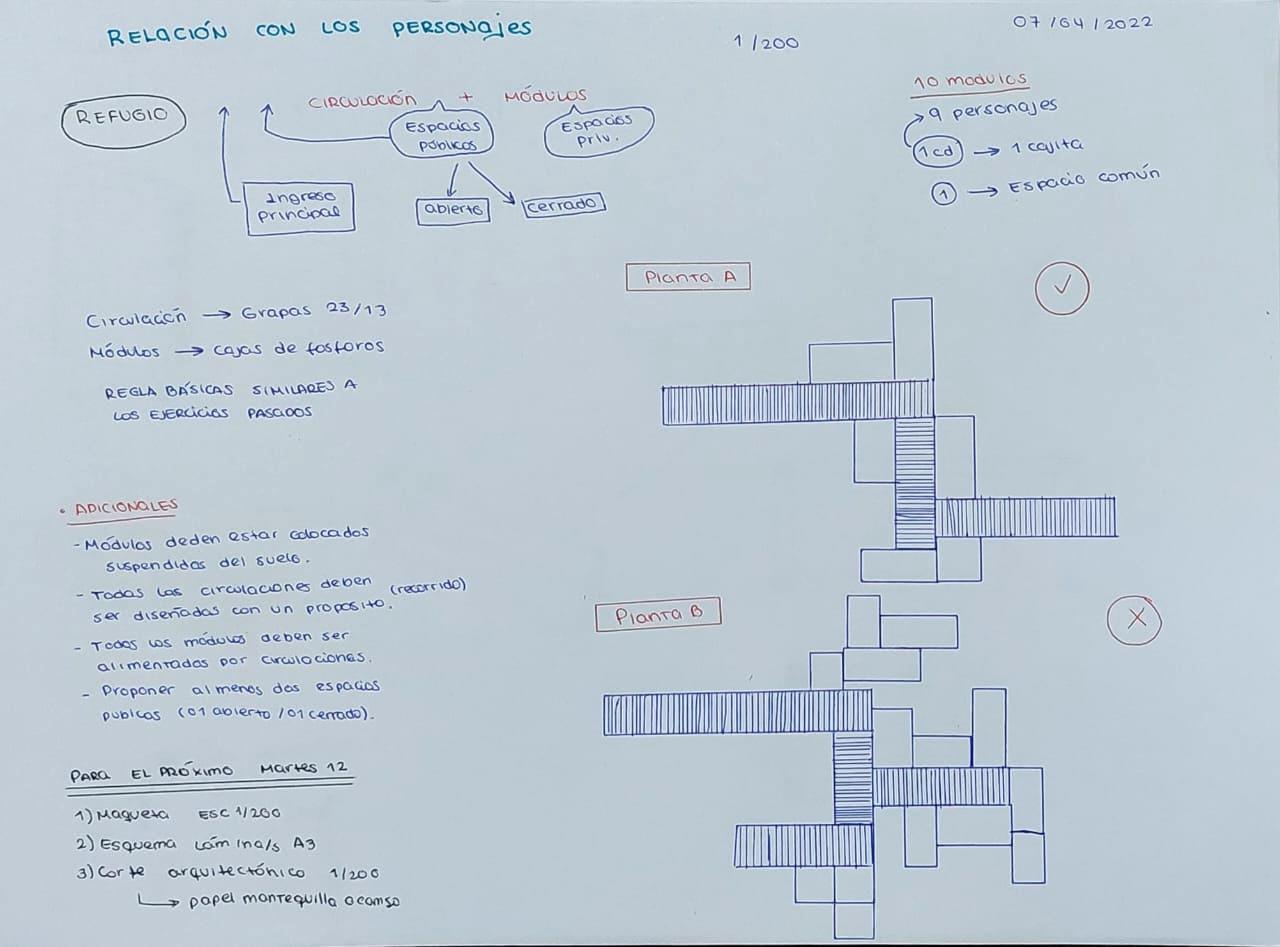 RELACIÓN CON LOS PERSONAJES
1/200
07/04/2022
REFUGIO
CIRCULACIÓN + MÓDULOS
Espacios
públicos
Espacios
priv.
Ingreso
principal
abierto
cerrado
10 modulos
9 personajes
1 cd → 1 cajita
1 → Espacio común
Circulación → Grapas 23/13
Módulos → cajas de fosforos
REGLA BÁSICAS SIMILARES A
LOS EJERCICIOS PASADOS
Planta A
• ADICIONALES
- Módulos deden estar colocados
suspendidas del suelo.
- Todas las circulaciones deben (recorrido)
ser diseñadas con un proposito.
- Todos los módulos deben ser
alimentadas por circulaciones.
- Proponer al menos dos espacios
publicos (01 abierto / 01 cerrado).
Planta B
PARA EL PRÓXIMO Martes 12
1) Maqueta ESC 1/200
2) Esquema Lámina/s A3
3) Corte arquitectónico 1/200
↳ papel mantequilla o canso